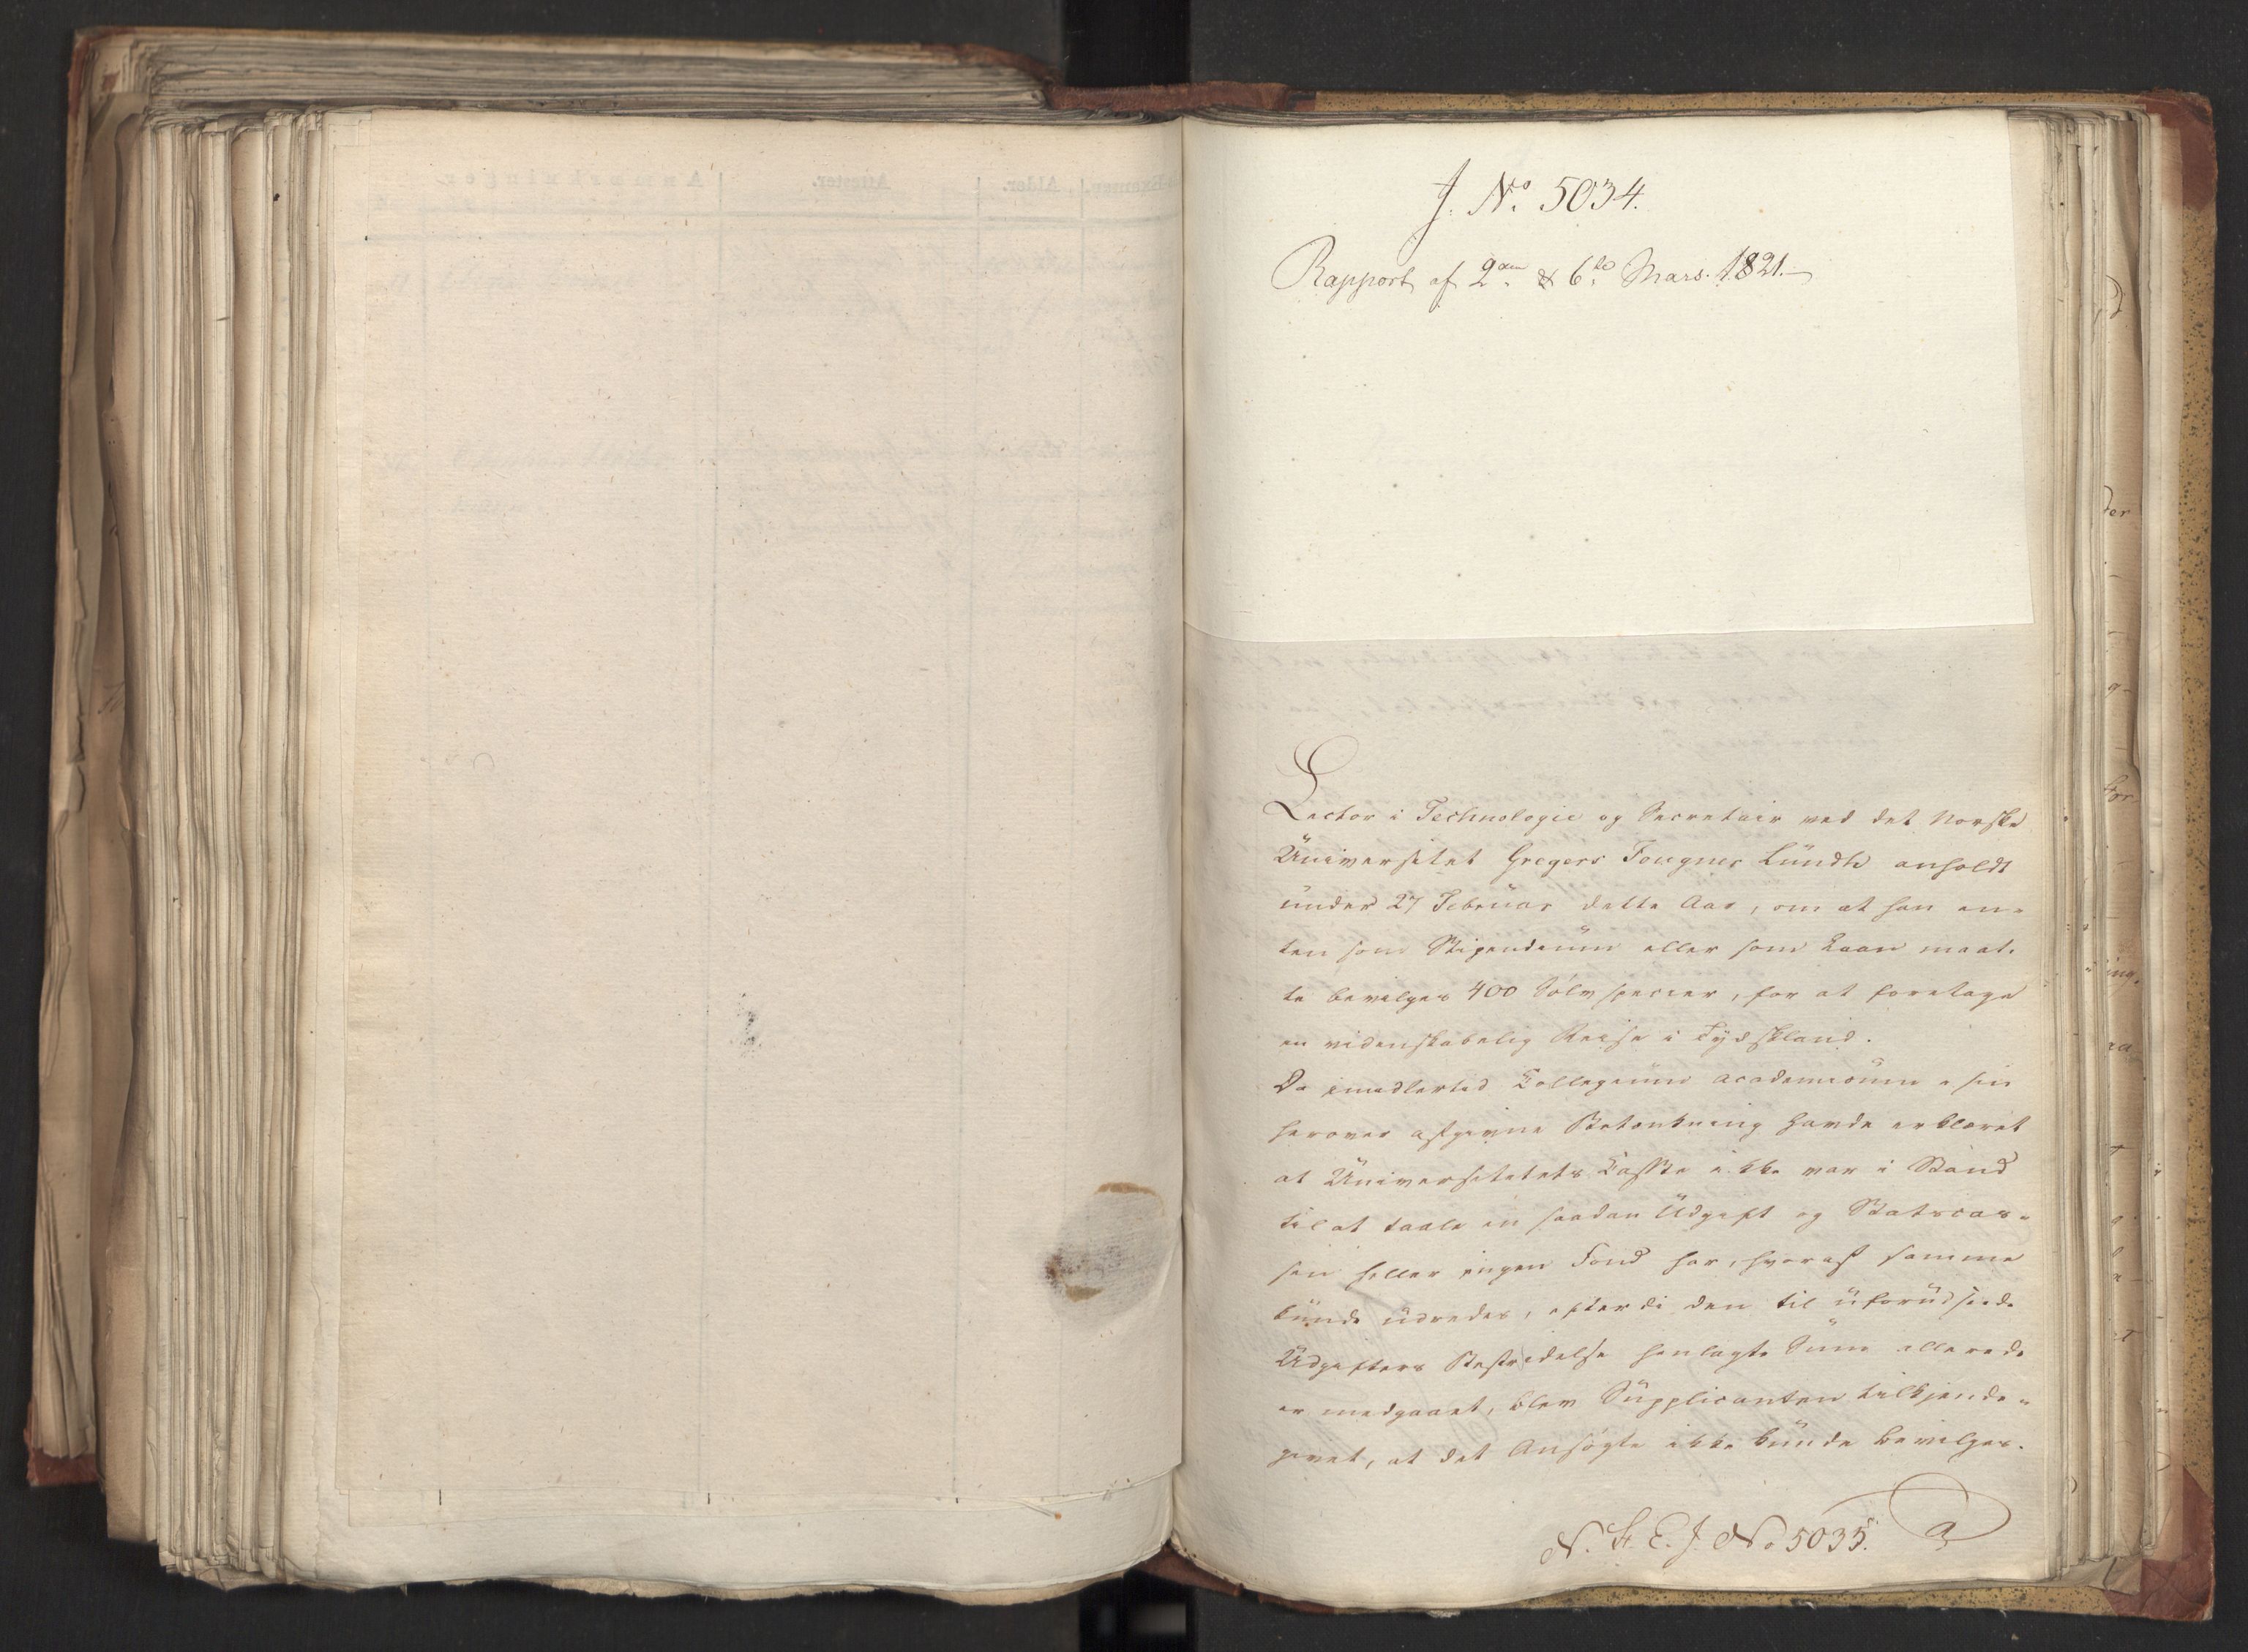 J. No. 5034.
Rapport af 2den & 6te Mars. 1821.
Lector i Technologie og Secretair ved det Norske
Universitet Gregers Fougner Lundh anholdt
under 27 Februar dette Aar, om at han en-
ten som Stipendium eller som Laan maat-
te bevilges 400 Sølv specier, for at foretage
en videnskabelig Reise i Tydskland.
Da imidlertid Collegium academicum i sin
herover afgivne Betænkning havde erklæret
at Universitetets Casse ikke var i Stand
til at taale en saadan Udgift og Statscas-
sen heller ingen Fond har, hvoraf samme
kunde udredes, efterdi den til uforudseede
Udgifters Bestridelse henlagte Sum allerede
er medgaaet, blev Supplicanten tilkjende-
givet, at det Ansøgte ikke kunde bevilges.
N. St. E. J. No 5035. a